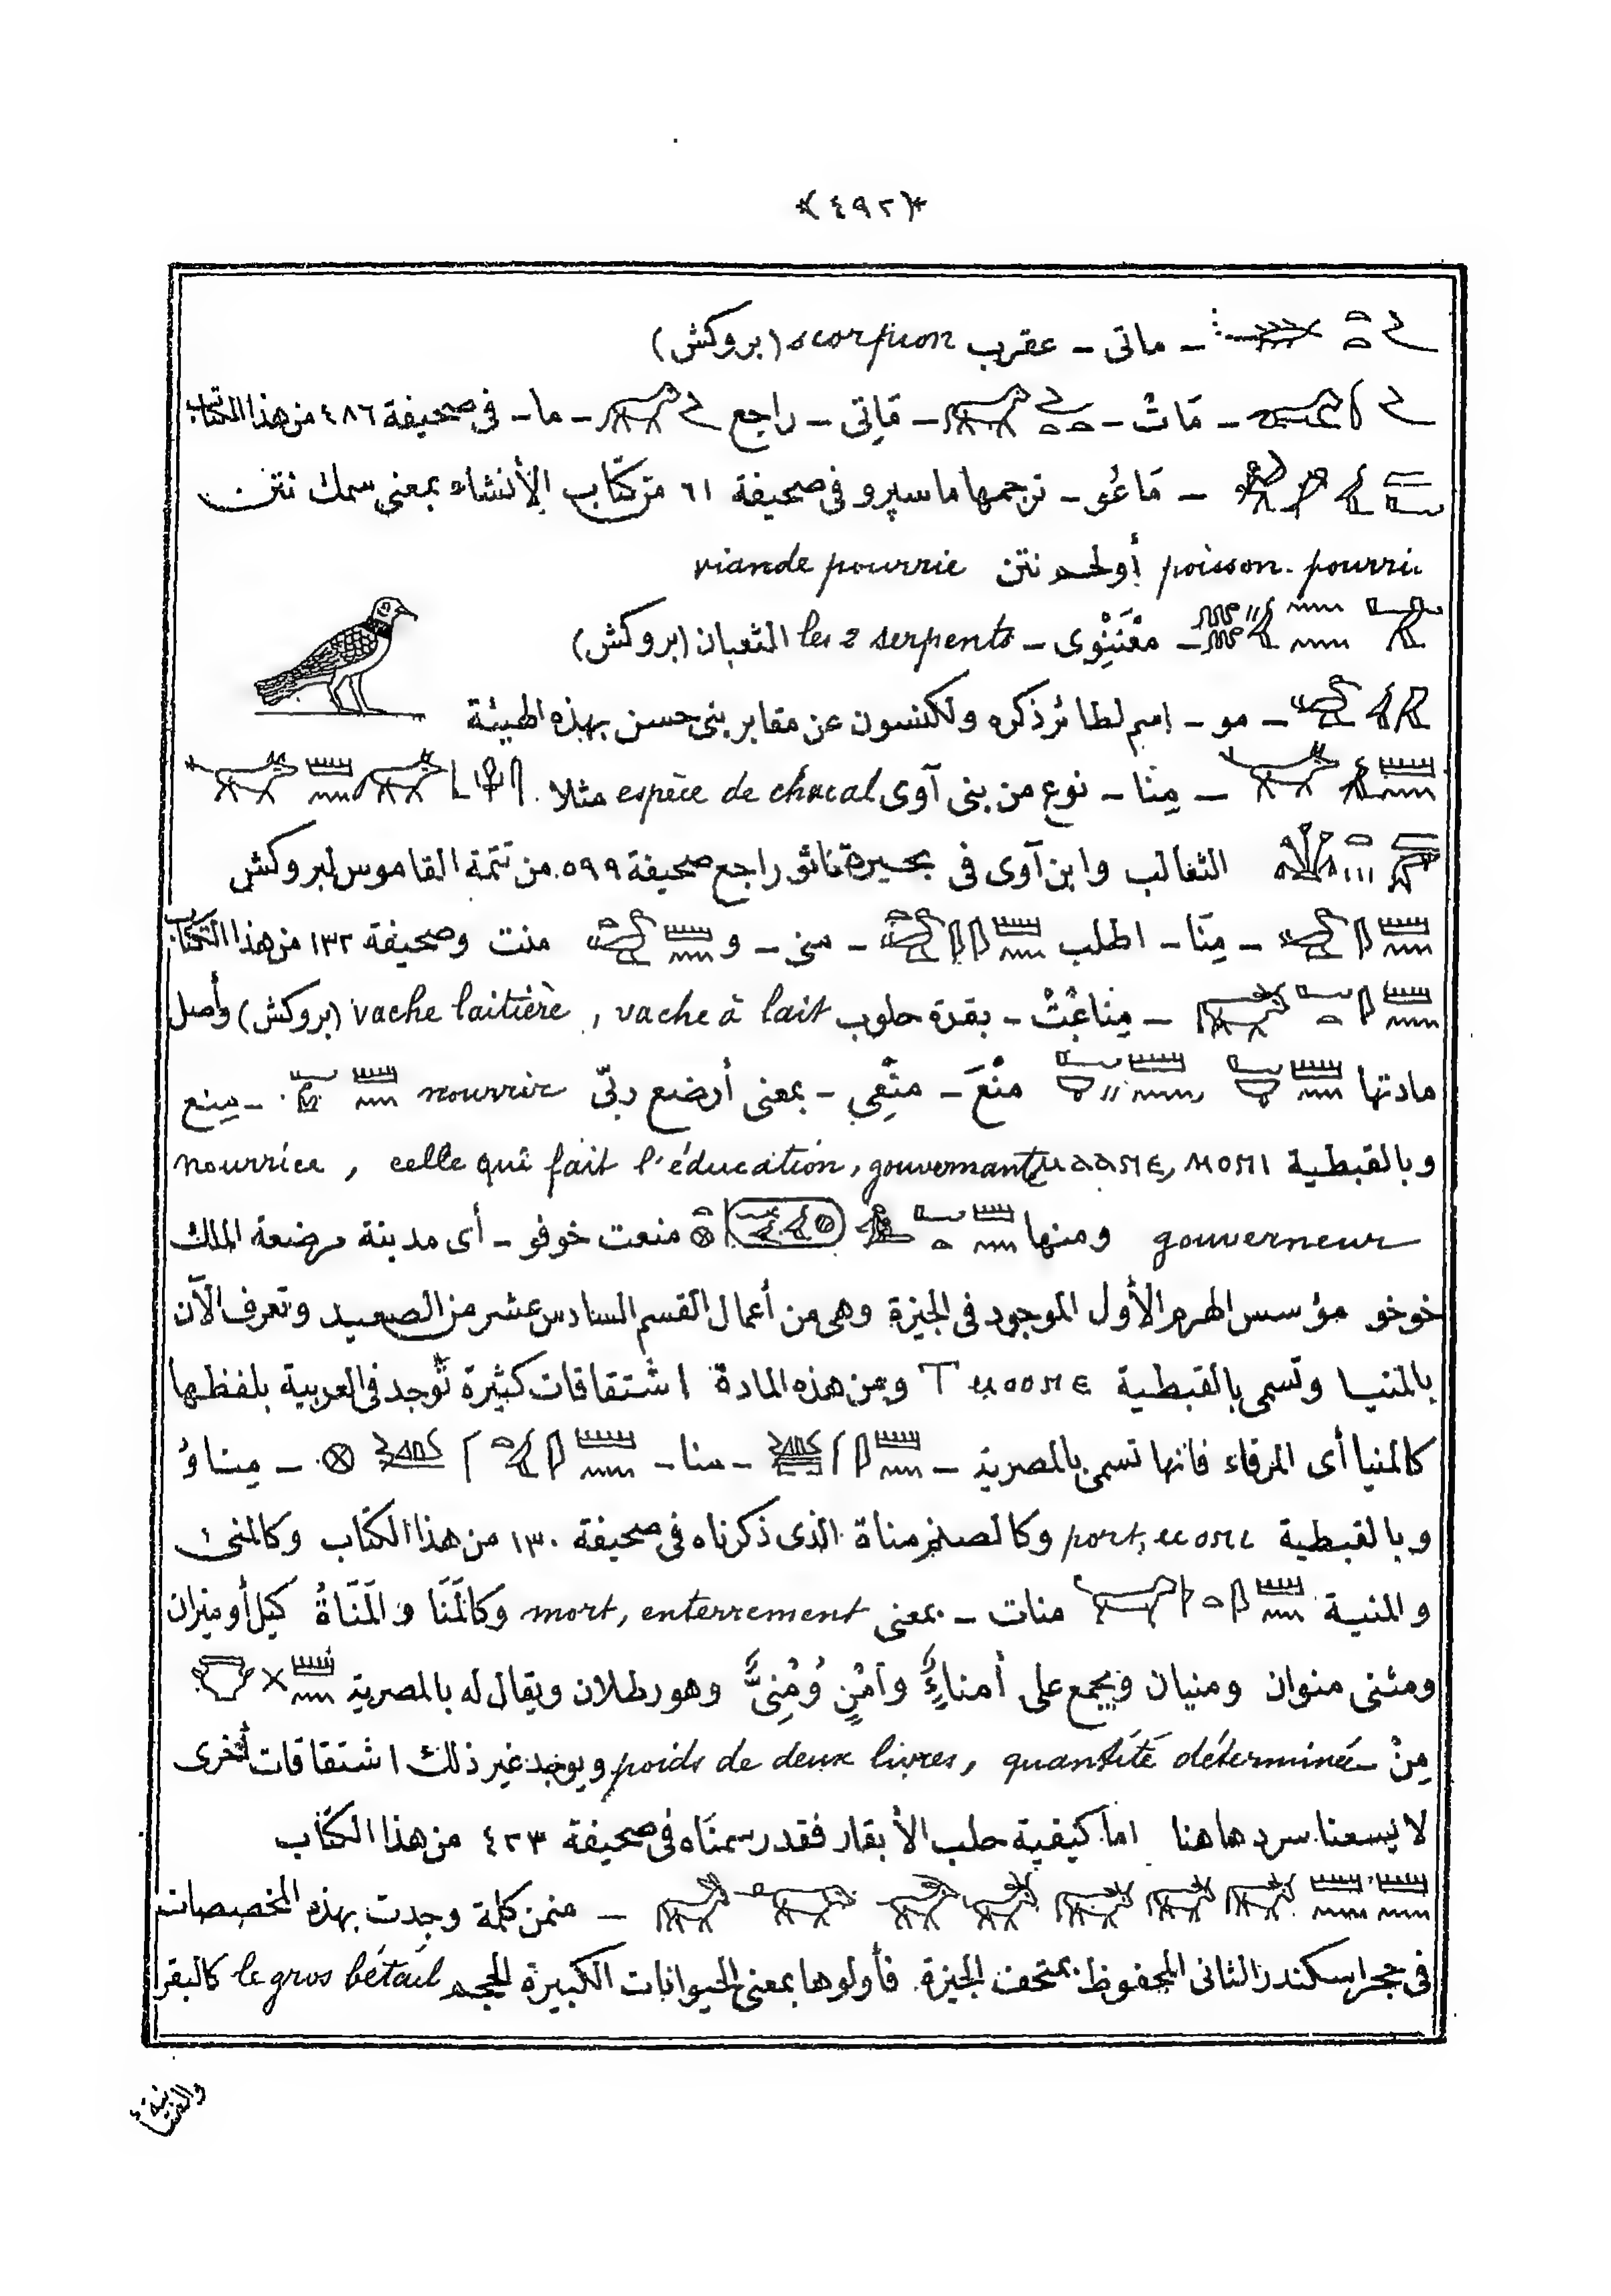 *(٤٩٢)*
ـ ماتى ـ عقرب scorpion (بروكش)
ـ مَاتْ ـ ـ مَاتِى ـ راجع ـ ما ـ فى صحيفة ٤٨٦ من هذا الكتاب
ـ مَاعُو ـ ترجمها ماسپرو فى صحيفة ٦١ من كتاب الأنشاء بمعنى سمك نتن
poisson pourri أو لحم نتن viande pourrie
ـ les 2 serpents الثعبان (بروكش)
ـ مو ـ اسم لطائر ذكره ولكنسون عن مقابر بنى حسن بهذه الهيئة
ـ مِنَا ـ نوع من بنى آوى espèce de chacal مثلا
الثعالب وابن آوى فى بحيرة راجع صحيفة ٥٩٩ من تتمة القاموس لبروكش
ـ مِنَا ـ اطلب ـ منى ـ و منت وصحيفة ١٣٢ من هذا الكتاب
ـ مِنَاعْتْ ـ بقرة حلوب vache laitière , vache à lait (بروكش) وأصل
مادتها مَنْعَ ـ مَنْعِى ـ بمعنى أرضع ربّى nourrir ـ مينع
وبالقبطية ⲙⲟⲛⲓ ,ⲙⲁⲁⲛⲉ nourrice , celle qui fait l'éducation, gouvernante
gouverneur ومنها منعت خوفو ـ أى مدينة مرضعة الملك
خوخو مؤسس الهرم الأول الموجود فى الجيزة وهى من أعمال القسم السادس عشر من الصعيد وتعرف الآن
بالمنيا وتسمى بالقبطية Ⲧⲙⲟⲟⲛⲉ ومن هذه المادة اشتقاقات كثيرة توجد فى العربية بلفظها
كالمنيا أى المرفاء فانها تسمى بالمصرية ـ ـ منا ـ ـ ميناوُ
وبالقبطية ⲙⲟⲛⲓ ,port وكالصنم مناة الذى ذكرناه فى صحيفة ١٣٠ من هذا الكتاب وكالمنى
والمنية منات ـ بمعنى mort, enterrement وكالمَنَا والمَنَاةُ كيل أو ميزان
ومثنى منوان ومنيان ويجمع على أمناءٌ وأَمْنٍ ومُنِىٌّ وهو رطلان ويقال له بالمصرية
مِنْ ـ poids de deux livres, quantité déterminée ويوجد غير ذلك اشتقاقات أخرى
لا يسعنا سردها هنا اما كيفية حلب الأبقار فقد رسمناه فى صحيفة ٤٢٣ من هذا الكتاب
ـ منمن كلمة وجدت بهذه المخصصات
فى حجر اسكندر الثانى المحفوظ بمتحف الجيزة فأولوها بمعنى الحيوانات الكبيرة الحجم le gros bétail كالبقر